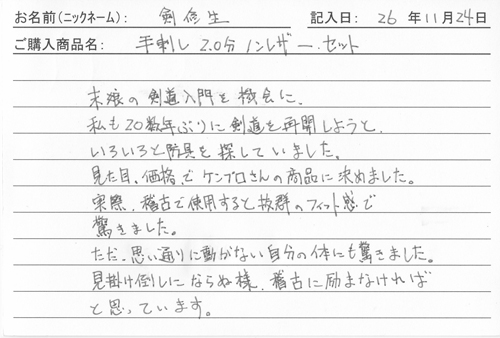 お名前(ニックネーム): 剣修生 記入日: 26年11月24日
ご購入商品名: 手刺し 2.0分 ノンレザー・セット
末娘の剣道入門を機会に、
私も20数年ぶりに剣道を再開しようと、
いろいろと防具を探していました。
見た目、価格、でケンプロさんの商品に決めました。
実際、稽古で使用すると抜群のフィット感で
驚きました。
ただ、思い通りに動かない自分の体にも驚きました。
見掛け倒しにならぬ様、稽古に励まなければ
と思っています。